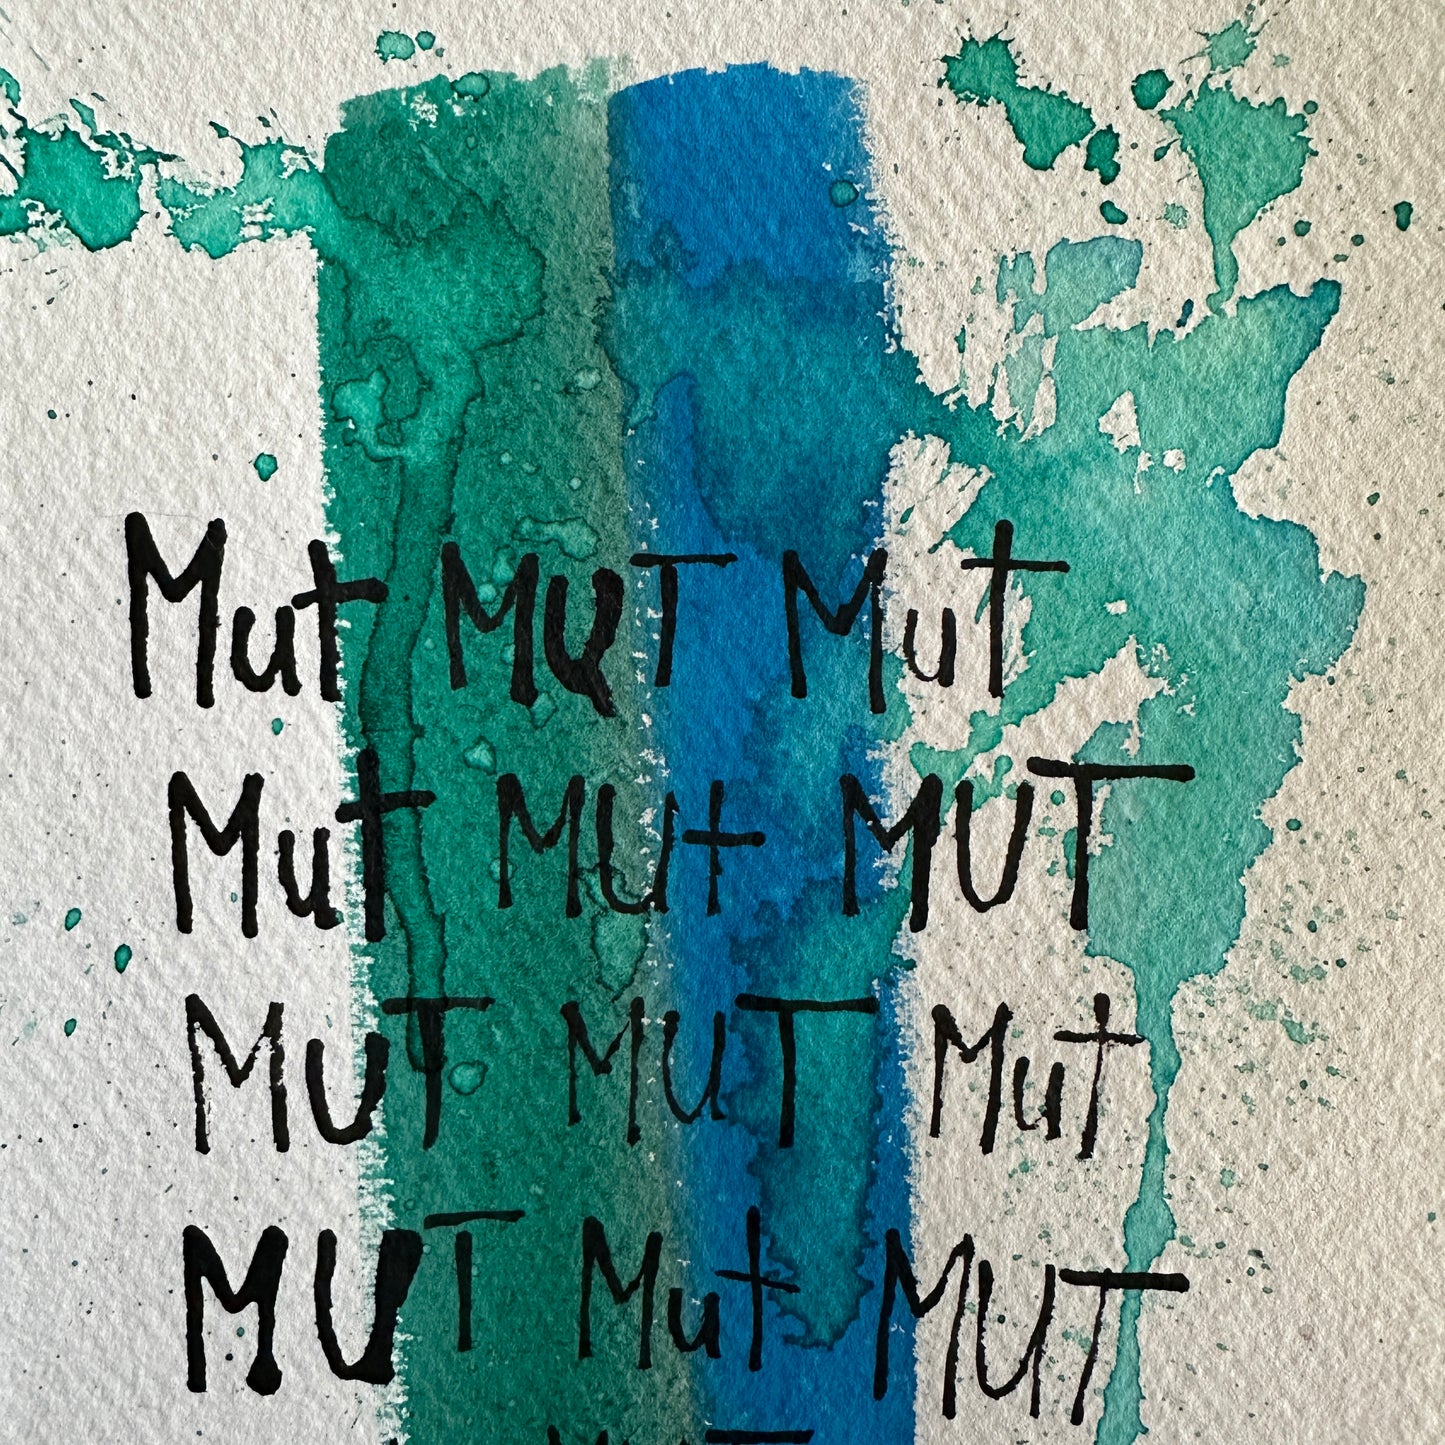 Mut MUT Mut
Mut MUt MUT
MuT MUT Mut
MUT Mut MUT